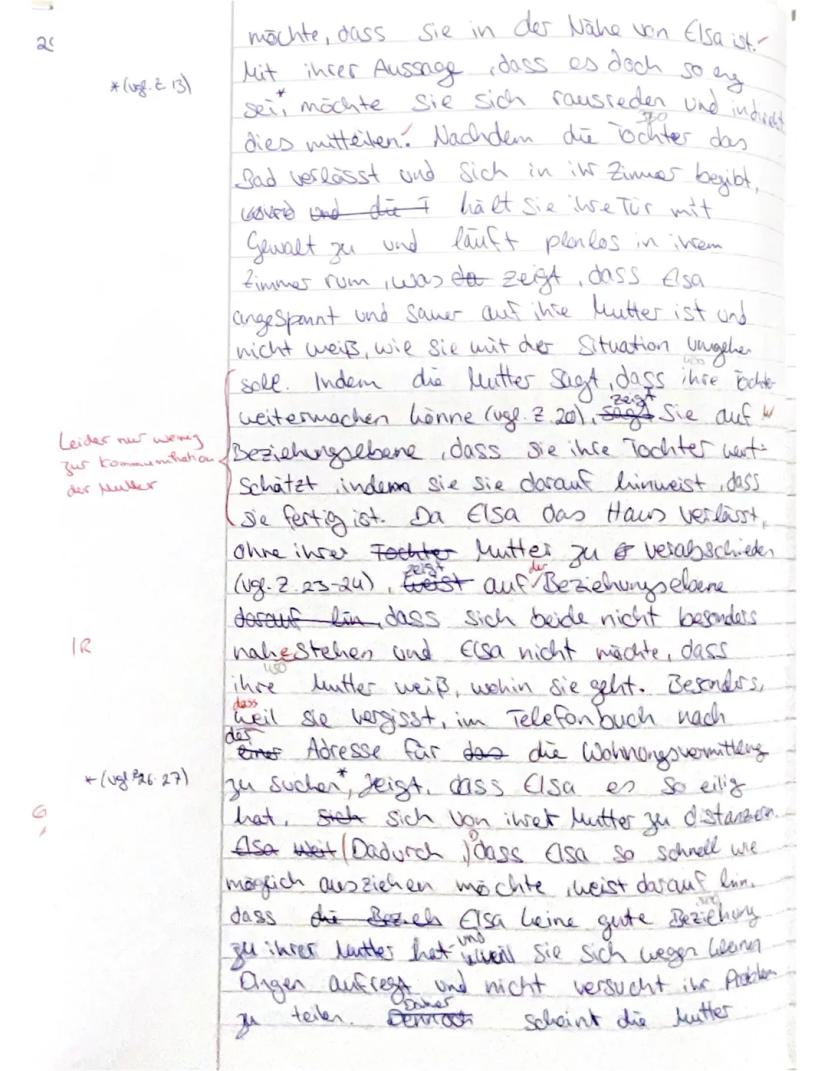 möchte, dass sie in der Nähe von Elsa ist.
Mit ihrer Aussage, dass es doch so eng
*(vgl. Z 13)
sei*, möchte sie sich rausreden und indirekt
dies mitteilen. Nachdem die Tochter das
Bad verlässt und sich in ihr Zimmer begibt,
und die T hält sie ihre Tür mit
Gewalt zu und läuft planlos in ihrem
Zimmer rum, was da zeigt, dass Elsa
angespannt und sauer auf ihre Mutter ist und
nicht weiß, wie sie mit der Situation umgehen
soll. Indem die Mutter sagt, dass ihre Tochter
weitermachen könne (vgl. Z. 20), sagt zeigt sie auf
Leider nur wenig
zur Kommunikation
der Mutter
Beziehungsebene, dass sie ihre Tochter wert-
schätzt, indem sie sie darauf hinweist, dass
sie fertig ist. Da Elsa das Haus verlässt,
ohne ihrer Tochter Mutter zu verabschieden
(vgl. Z. 23-24), weist zeigt auf der Beziehungsebene
darauf hin, dass sich beide nicht besonders
IR
nahestehen und Elsa nicht möchte, dass
ihre Mutter weiß, wohin sie geht. Besonders,
dass
weil sie vergisst, im Telefonbuch nach
der einer Adresse für das die Wohnungsvermittlung
*(vgl. Z 26-27)
zu suchen*, zeigt, dass Elsa es so eilig
G
hat, sich sich von ihrer Mutter zu distanzen.
Elsa weit (Dadurch, dass Elsa so schnell wie
möglich ausziehen möchte, weist darauf hin,
dass die Bezieh Elsa keine gute Beziehung
zu ihrer Mutter hat und weil sie sich wegen kleinen
Dingen aufregt und nicht versucht ihr Problem
zu teilen. Dennoch Daher scheint die Mutter